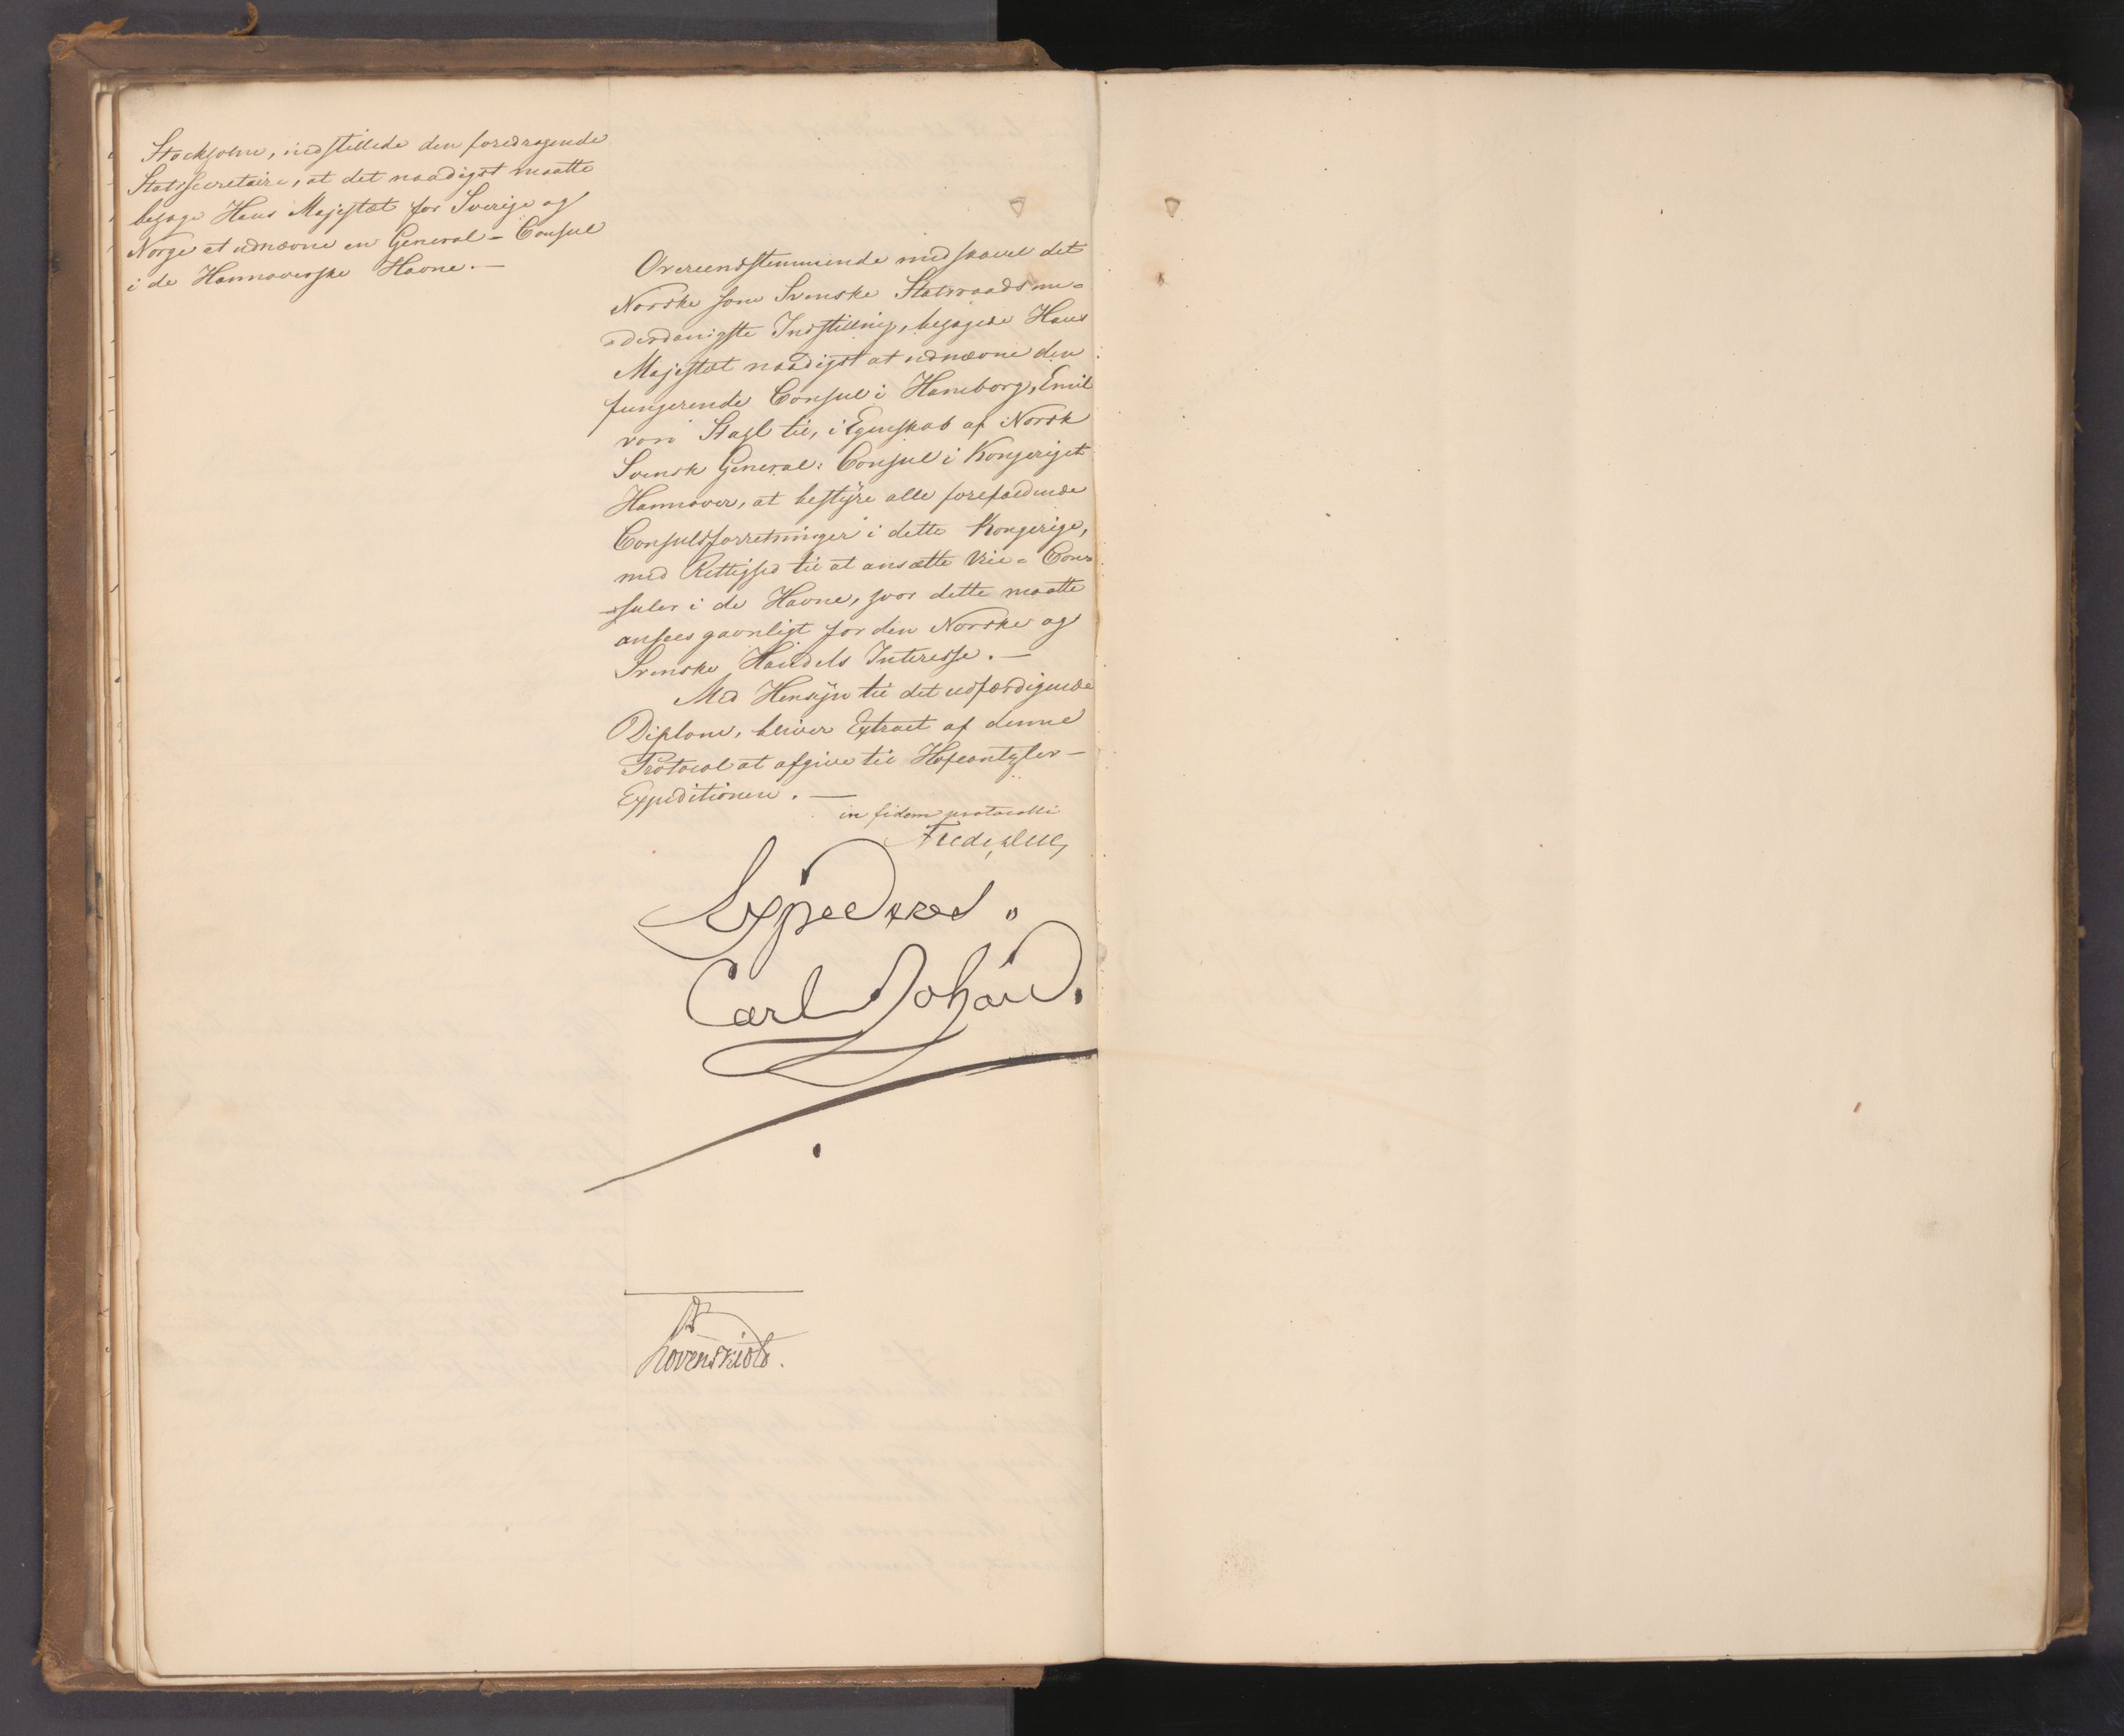 Stockholm, indstillede den foredragende
Statssecretaire, at det naadigst maatte
behage Hans Majestæt for Sverige og
Norge at udnævne en General-Consul
i de Hannoverske Havne.—
Overeensstemmende med saavel det
Norske som Svenske Statsraads un-
-derdanigste Indstilling, behagede Hans
Majestæt naadigst at udnævne den
fungerende Consul i Hamborg, Emil
von Stahl til, i Egenskab af Norsk
Svensk General: Consul i Kongeriget
Hannover, at bestÿre alle forefaldende
Consulsforretninger i dette Kongerige,
med Rettighed til at ansætte Vice-Con-
-suler i de Havne, hvor dette maatte
ansees gavnligt for den Norske og
Svenske Handels Interesse.—
Med Hensÿn til det udfærdigende
Diplom, bliver Extract af denne
Protocol at afgive til Hofcantzler-
Expeditionen.—
in fidem protocolli
Fredr. Due
Expederes.
Carl Johan.
Løvenskiold.